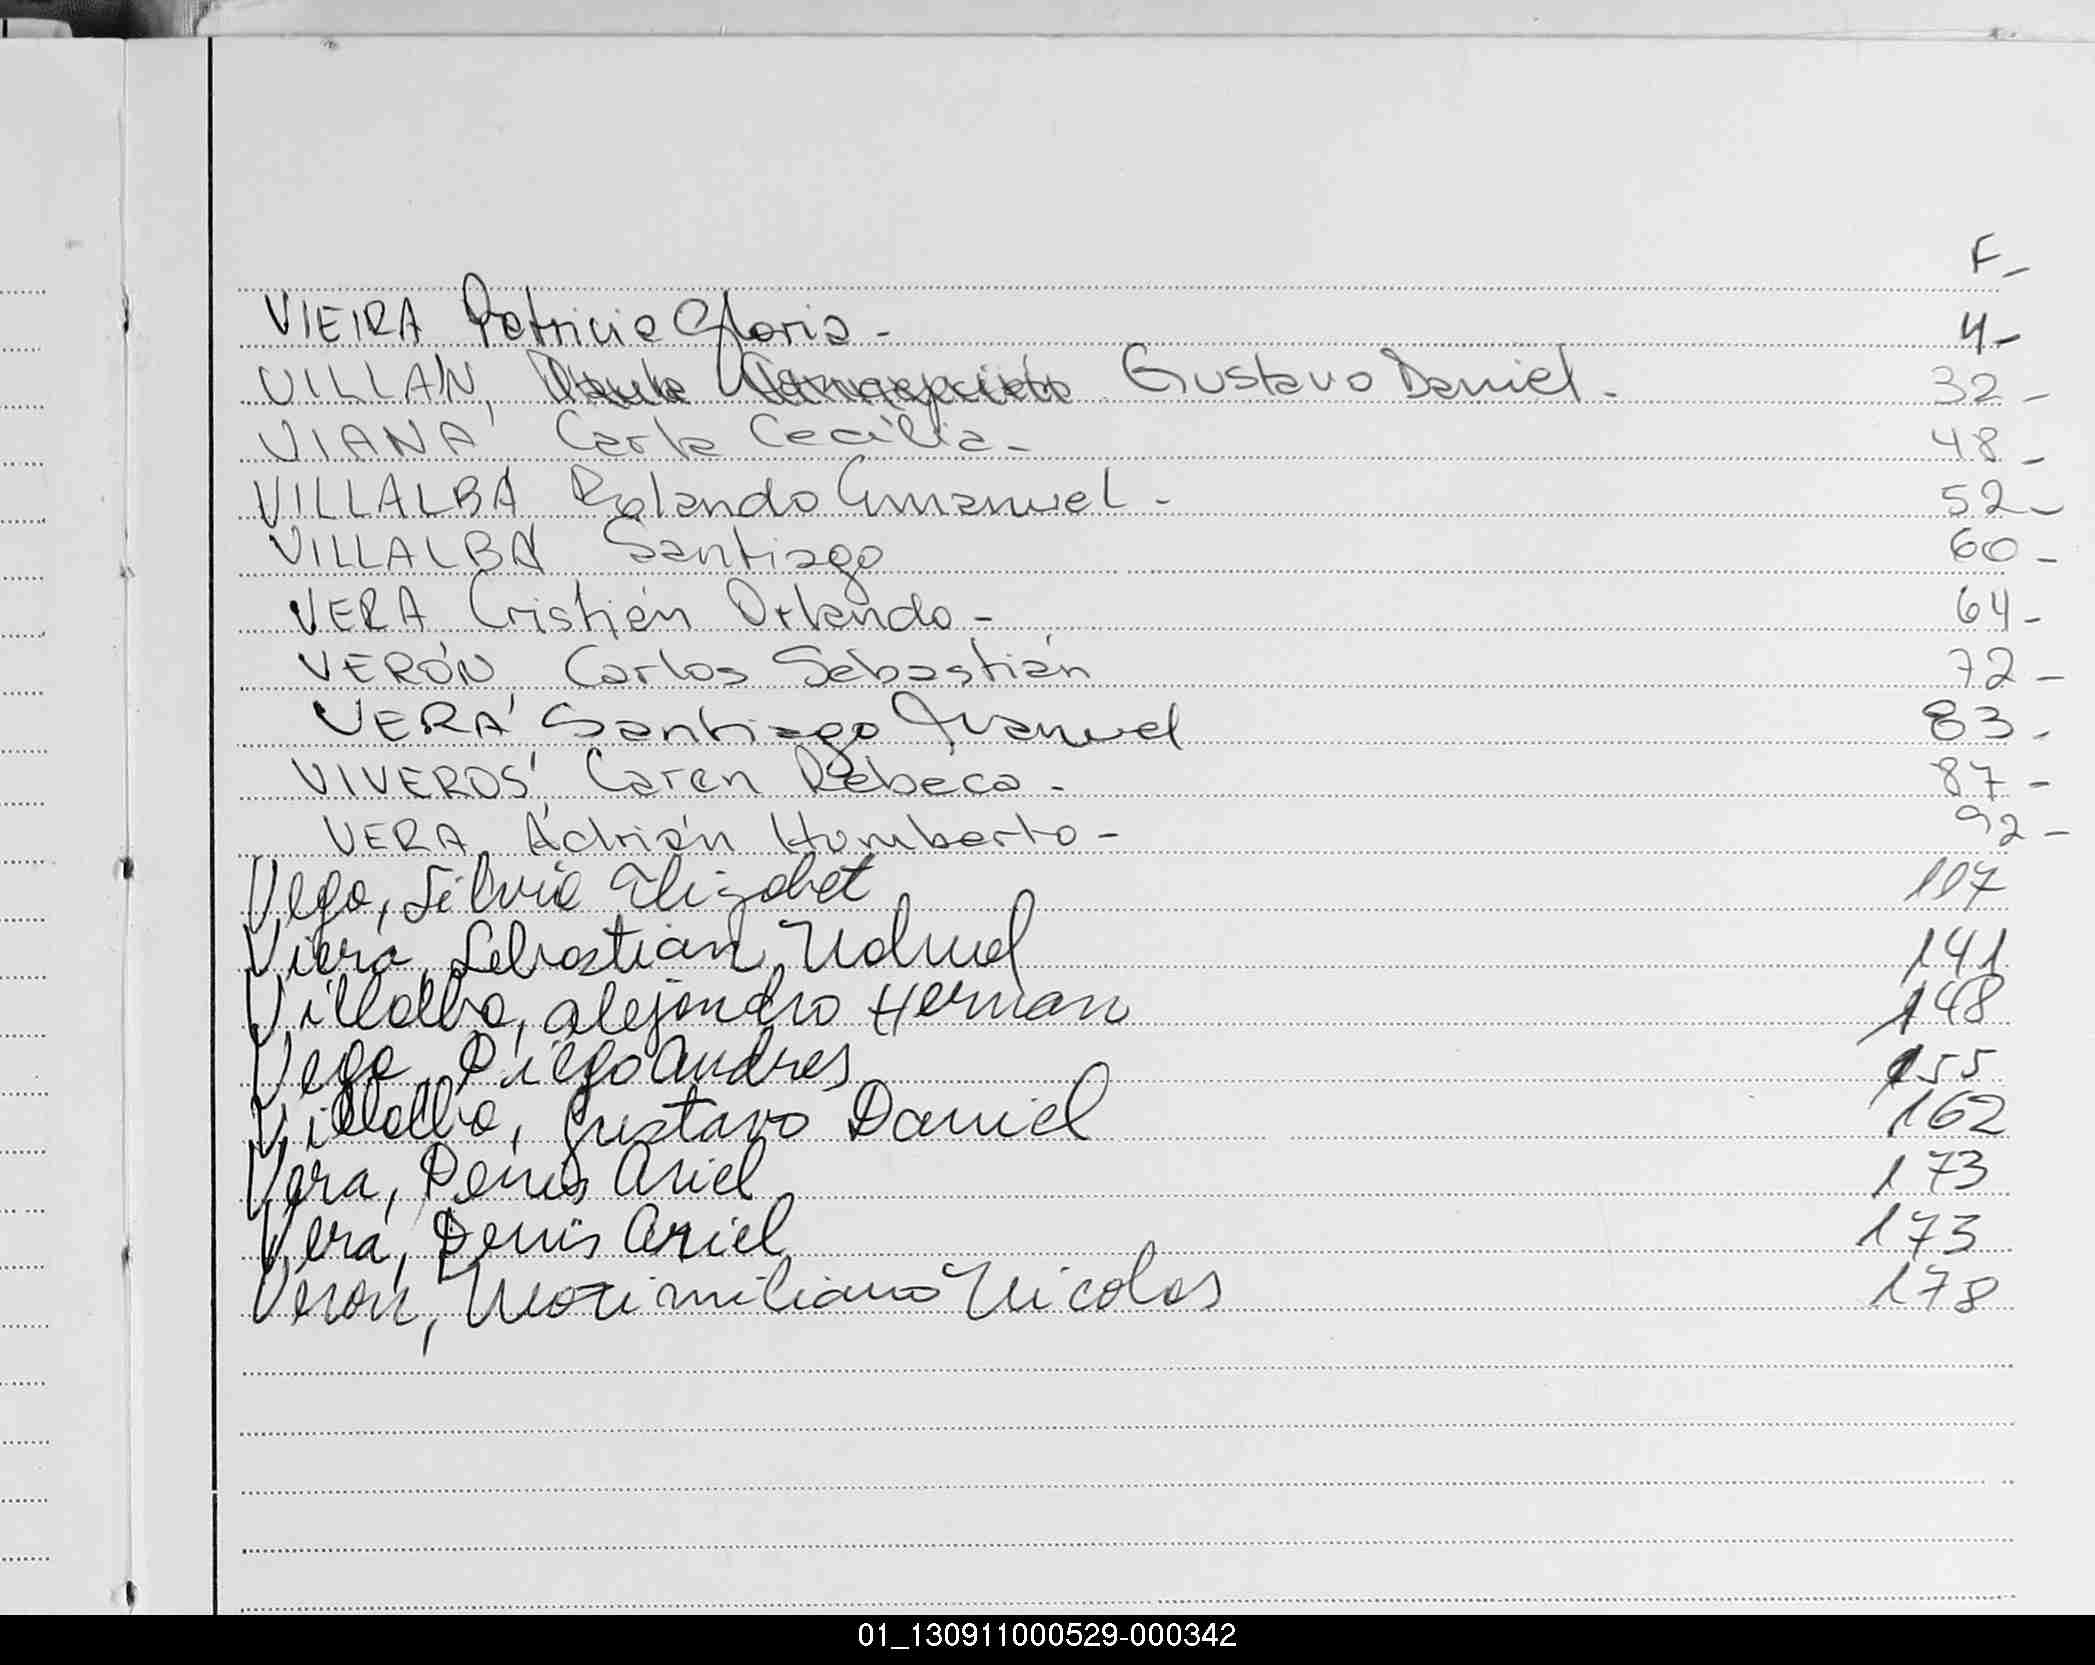 F-
VIEIRA Patricia Gloria - 4-
VILLAN, Gustavo Daniel. 32-
VIANA, Carla Cecilia - 48-
VILLALBA, Rolando Emanuel - 52-
VILLALBA, Santiago 60-
VERA, Cristián Orlando - 64-
VERÓN, Carlos Sebastián 72-
VERA, Santiago Manuel 83-
VIVEROS, Caren Rebeca - 87-
VERA, Adrián Humberto - 92-
Vega, Silvia Elizabet 117
Viera, Sebastian Nahuel 141
Villalba, Alejandro Hernan 148
Vega, Diego Andres 155
Villalba, Gustavo Daniel 162
Vera, Denis Ariel 173
Vera, Denis Ariel 173
Veron, Maximiliano Nicolas 178
01_130911000529-000342